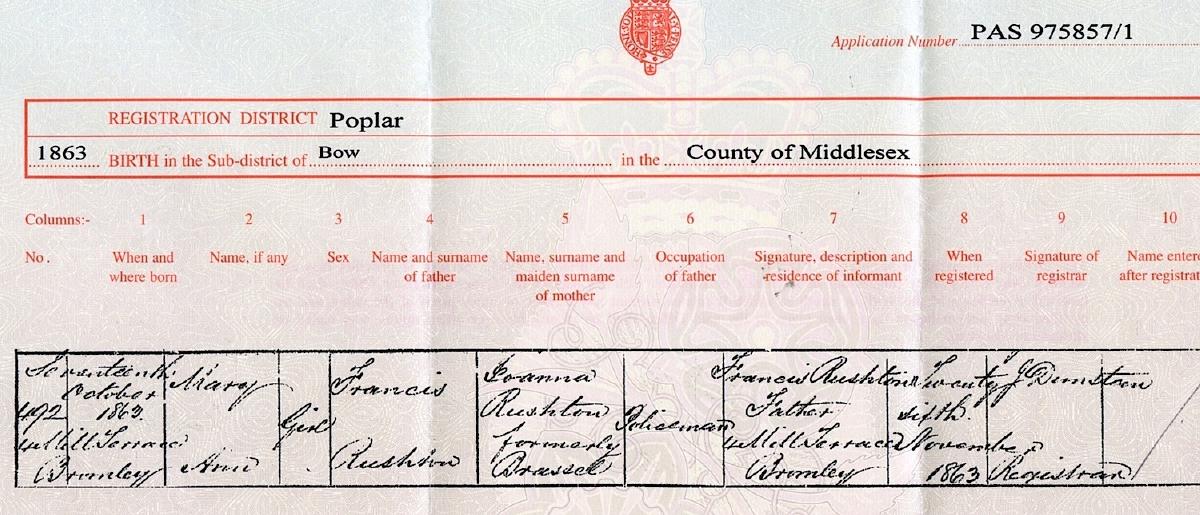 Application Number PAS 975857/1
REGISTRATION DISTRICT Poplar
1863 BIRTH in the Sub-district of Bow in the County of Middlesex
Columns:- 1 2 3 4 5 6 7 8 9 10
No. When and where born Name, if any Sex Name and surname of father Name, surname and maiden surname of mother Occupation of father Signature, description and residence of informant When registered Signature of registrar Name entere after registrat
492
Seventeenth
October
1863
4 Mill Terrace
Bromley
Mary
Ann
Girl
Francis
Rushton
Joanna
Rushton
formerly
Brassel
Policeman
Francis Rushton
Father
4 Mill Terrace
Bromley
Twenty
sixth
November
1863
J Dunstan
Registrar